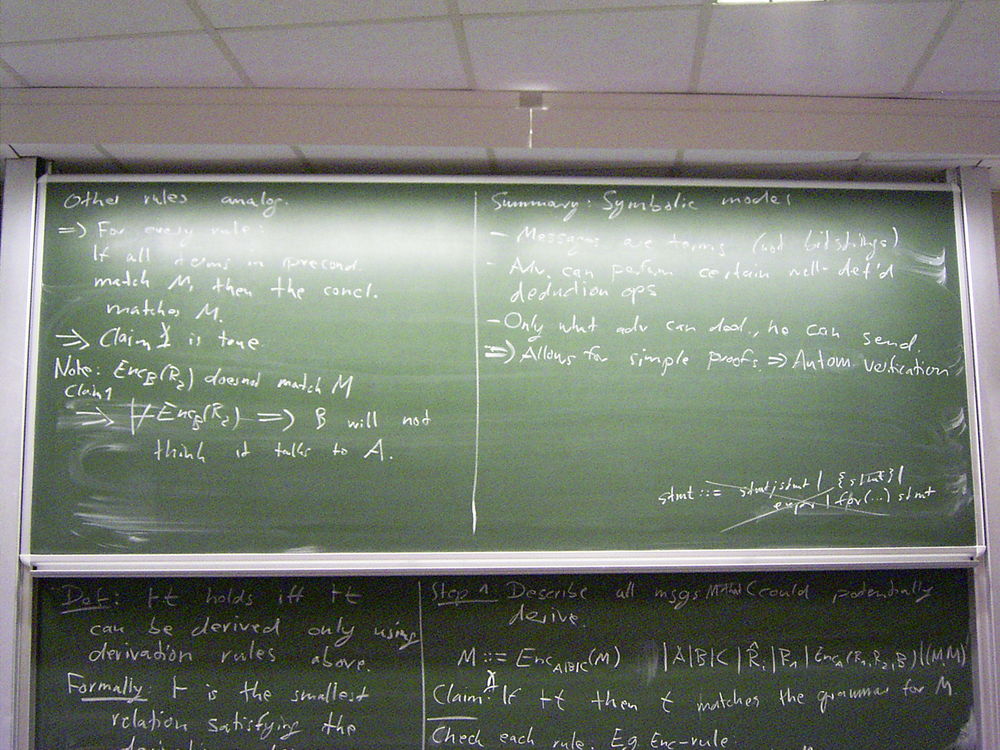 Other rules analog.
=> For every rule:
If all terms in precond.
match M, then the concl.
matches M.
=> Claim 1 is true.
Note: Enc_B(R_2) does not match M
Claim 1
=> ⊬ Enc_B(R_2) => B will not
think it talks to A.
Summary: Symbolic model
- Messages are terms (not bitstrings)
- Adv. can perform certain well-def'd
deduction ops
- Only what adv can ded., he can send.
=> Allows for simple proofs => Autom verification
stmt ::= stmt;stmt | {stmt} |
expr | for(...) stmt
Def: ⊢t holds iff ⊢t
can be derived only using
derivation rules above.
Formally: ⊢ is the smallest
relation satisfying the
Step 1: Describe all msgs M that C could potentially
derive.
M ::= Enc_A|B|C(M) |A|B|C|R̂_i|R_1|Enc_A(R_1,R_2,B)|(M,M)
Claim: If ⊢t then t matches the grammar for M.
Check each rule. E.g. Enc-rule: